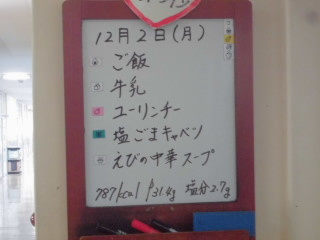 12月2日(月)
ご飯
牛乳
ユーリンチー
塩ごまキャベツ
えびの中華スープ
787kcal P31.4g 塩分2.7g